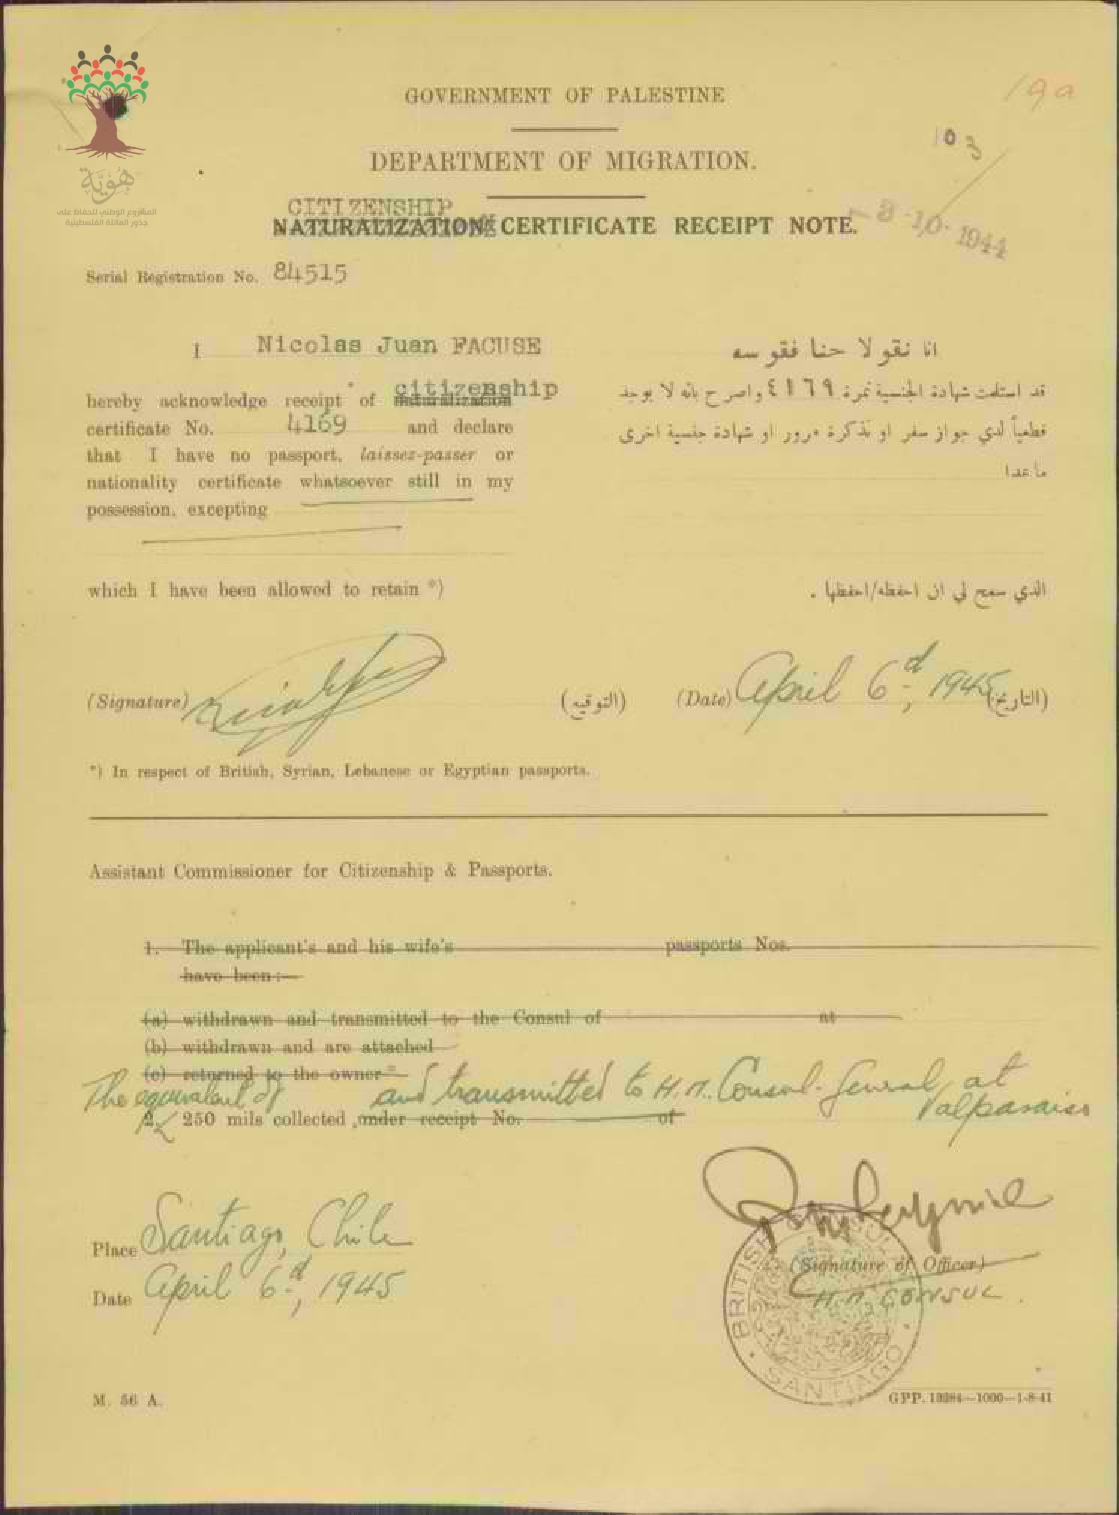 هُويَّة
المشروع الوطني للحفاظ على
جذور العائلة الفلسطينية
19a
103
GOVERNMENT OF PALESTINE
DEPARTMENT OF MIGRATION.
CITIZENSHIP
NATURALIZATION CERTIFICATE RECEIPT NOTE.
- 3-10-1944
Serial Registration No. 84515
I Nicolas Juan FACUSE
انا نقولا حنا فقوسه
citizenship
hereby acknowledge receipt of naturalization
certificate No. 4169 and declare
that I have no passport, laissez-passer or
nationality certificate whatsoever still in my
possession, excepting
قد استلمت شهادة الجنسية نمرة ٤١٦٩ واصرح بانه لا يوجد
قطعياً لدي جواز سفر او تذكرة مرور او شهادة جنسية اخرى
ما عدا
which I have been allowed to retain *)
الذي سمح لي ان احفظه/احفظها .
(Signature) (التوقيع) (Date) April 6d, 1945 (التاريخ)
*) In respect of British, Syrian, Lebanese or Egyptian passports.
Assistant Commissioner for Citizenship & Passports.
1. The applicant's and his wife's passports Nos.
have been:—
(a) withdrawn and transmitted to the Consul of at
(b) withdrawn and are attached
(c) returned to the owner*
The equivalent of and transmitted to H.M. Consul-General, at Valparaiso
2. 250 mils collected, under receipt No. of
Place Santiago, Chile
Date April 6d, 1945
(Signature of Officer)
H.M. CONSUL.
BRITISH CONSUL
SANTIAGO
M. 56 A.
GPP. 13384—1000—1-8-41